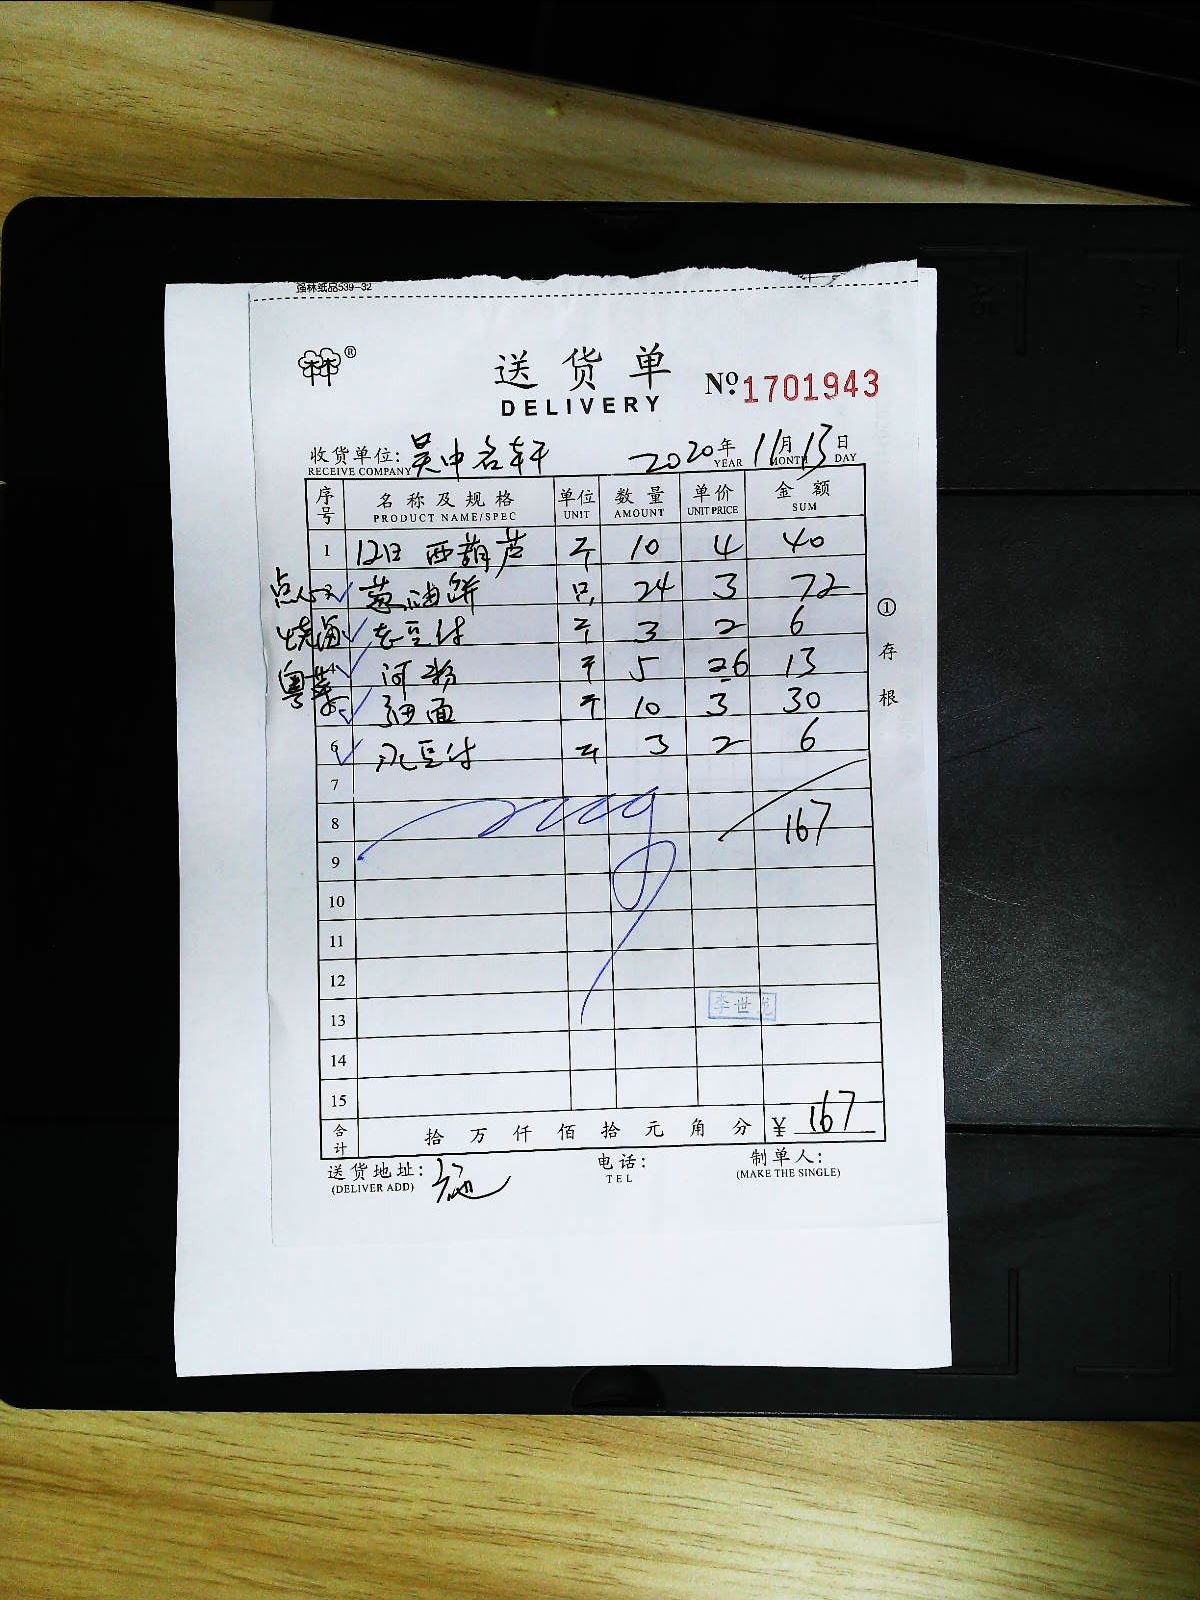 强林纸品539-32
林®
送货单
DELIVERY
№ 1701943
收货单位: 吴中名轩 2020年 11月 13日
RECEIVE COMPANY YEAR MONTH DAY
序号 名称及规格 单位 数量 单价 金额
PRODUCT NAME/SPEC UNIT AMOUNT UNIT PRICE SUM
1 12日 西葫芦 斤 10 4 40
点心 葱油饼 只 24 3 72
烧卤 老豆付 斤 3 2 6
粤菜 4 河粉 斤 5 26 13
5 细面 斤 10 3 30
6 豆付 斤 3 2 6
7
8 167
9
10
11
12
13 李世龙
14
15
合计 拾 万 仟 佰 拾 元 角 分 ¥ 167
送货地址: 电话: 制单人:
(DELIVER ADD) TEL (MAKE THE SINGLE)
① 存根